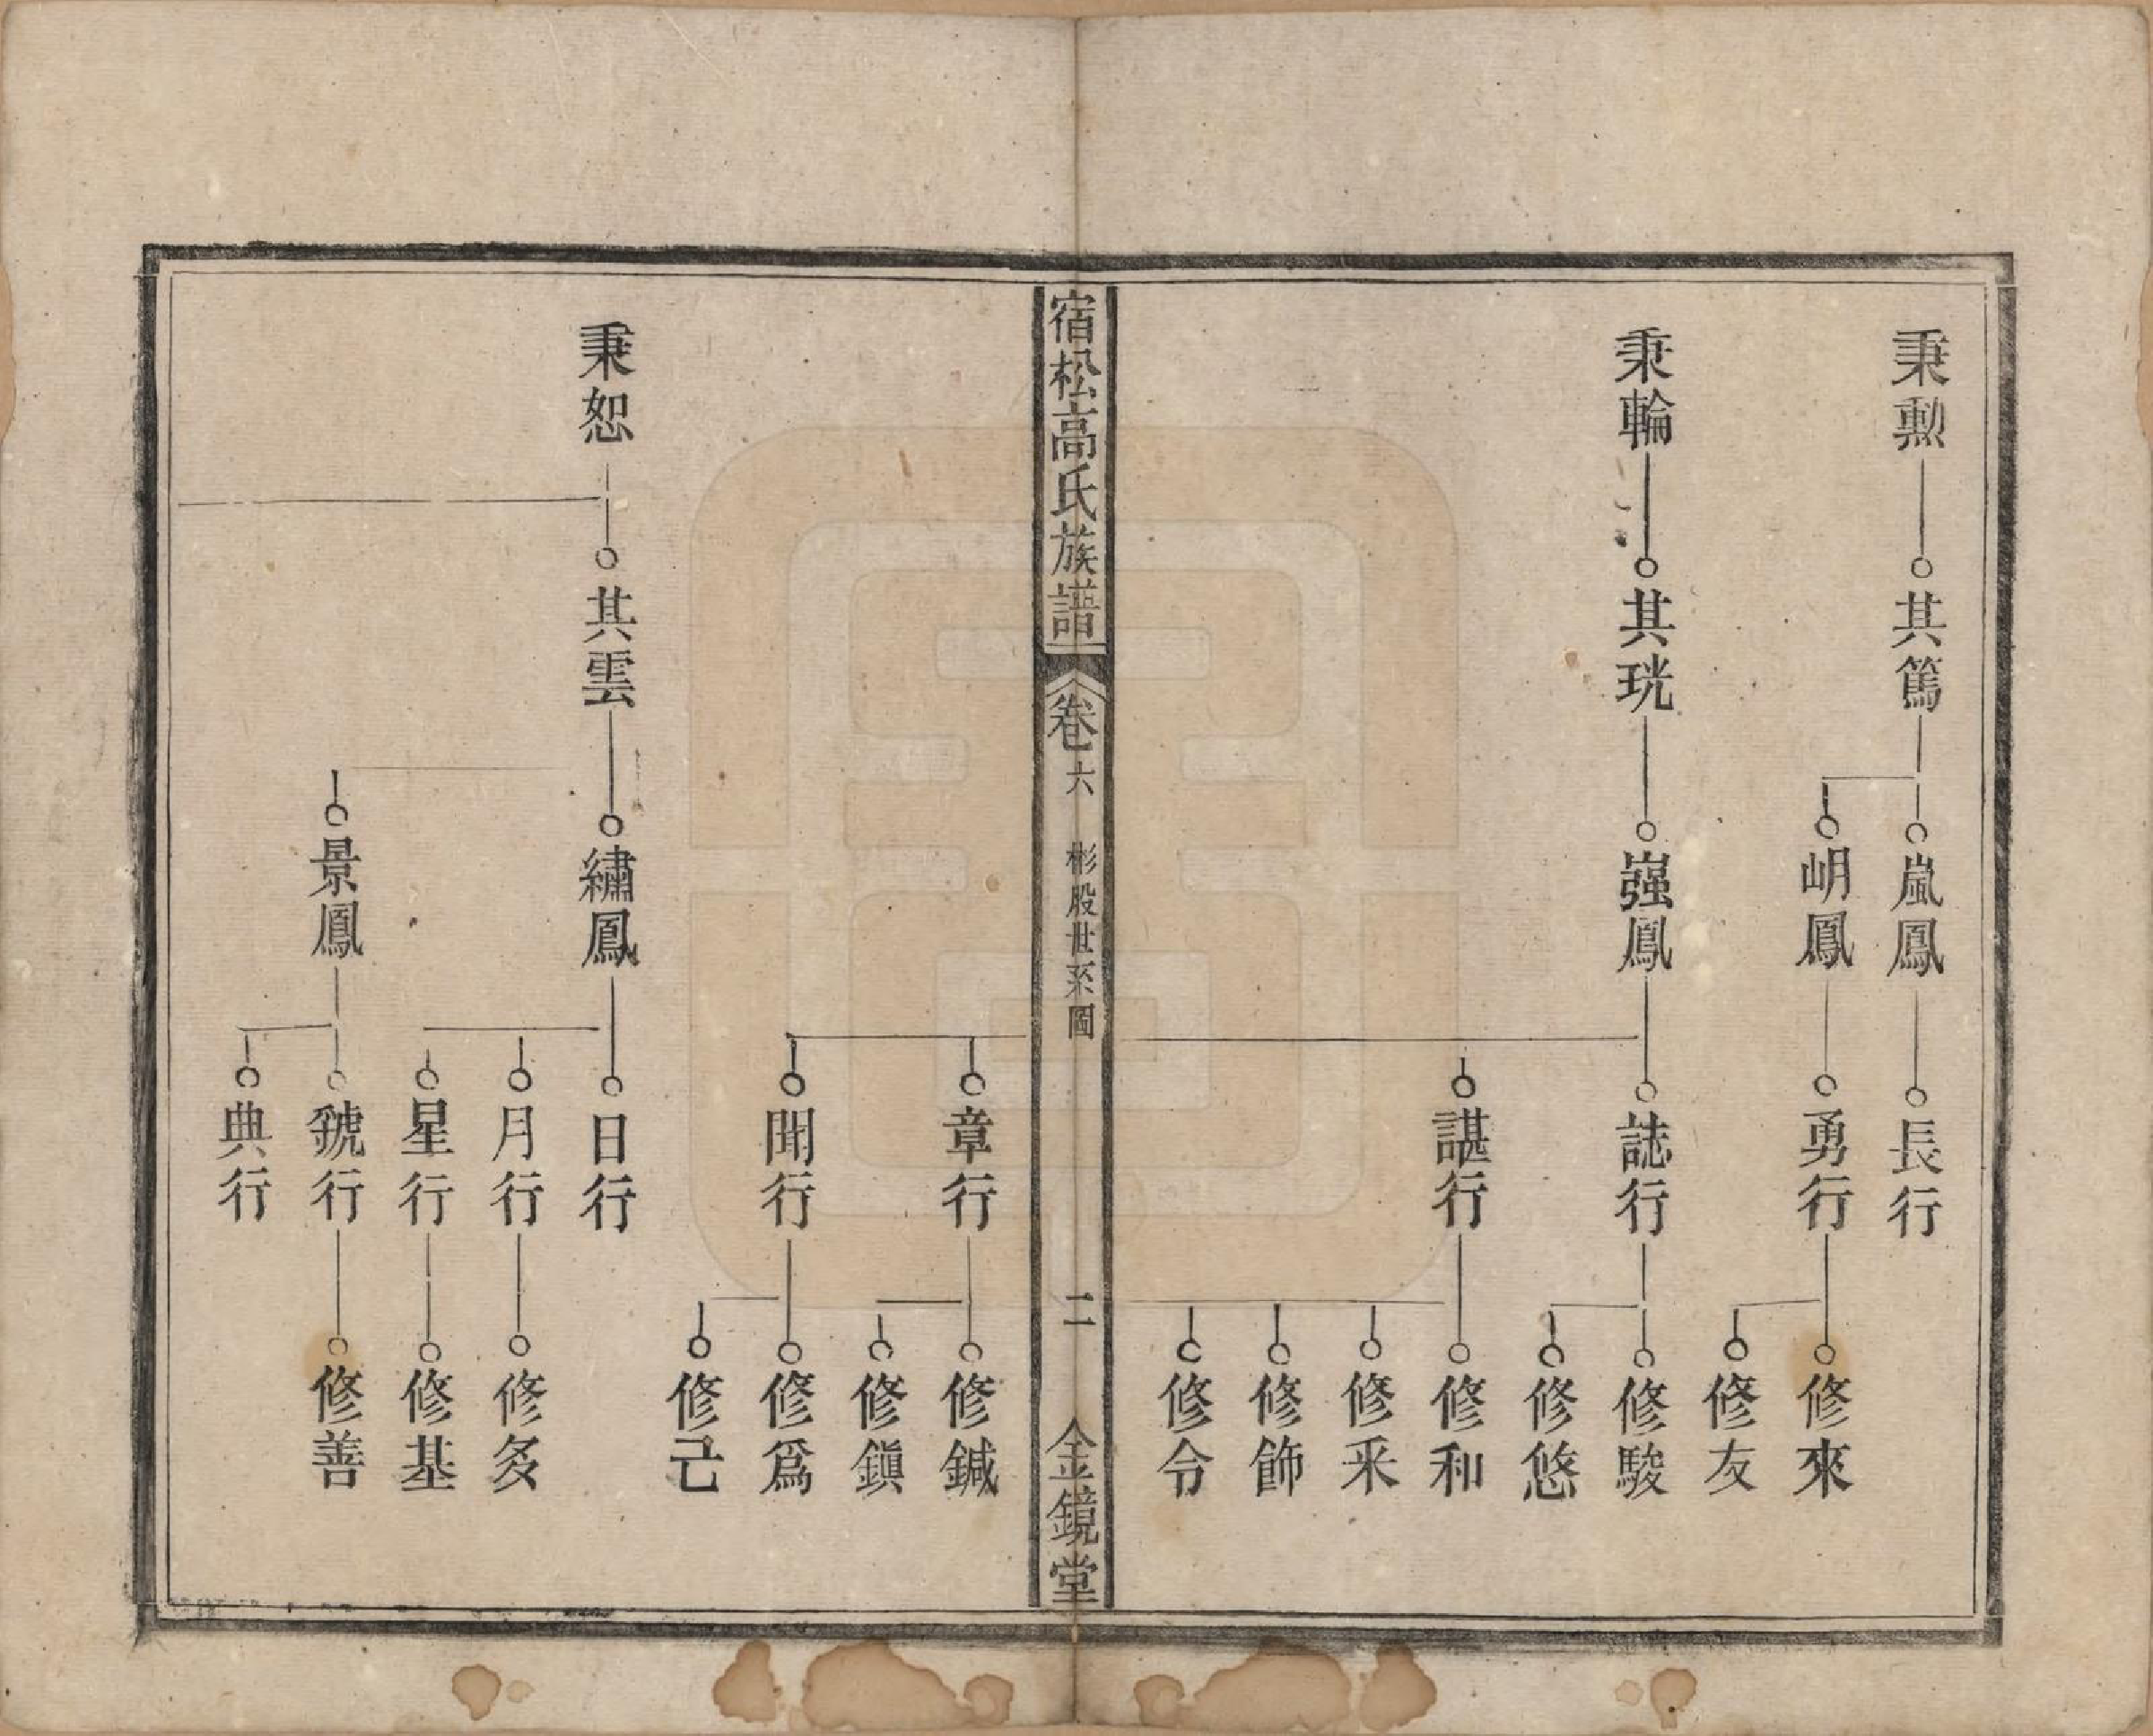 秉勲
其篤
嵐鳳
長行
岄鳳
勇行
修來
修友
秉輪
其珖
嵹鳳
誌行
修駿
修悠
諶行
修和
修采
修飾
修令
宿松高氏族譜
卷六
彬股世系圖
二
金鏡堂
章行
修鍼
修鎭
聞行
修爲
修己
秉恕
其雲
繡鳳
日行
月行
修多
星行
修基
景鳳
號行
修善
典行